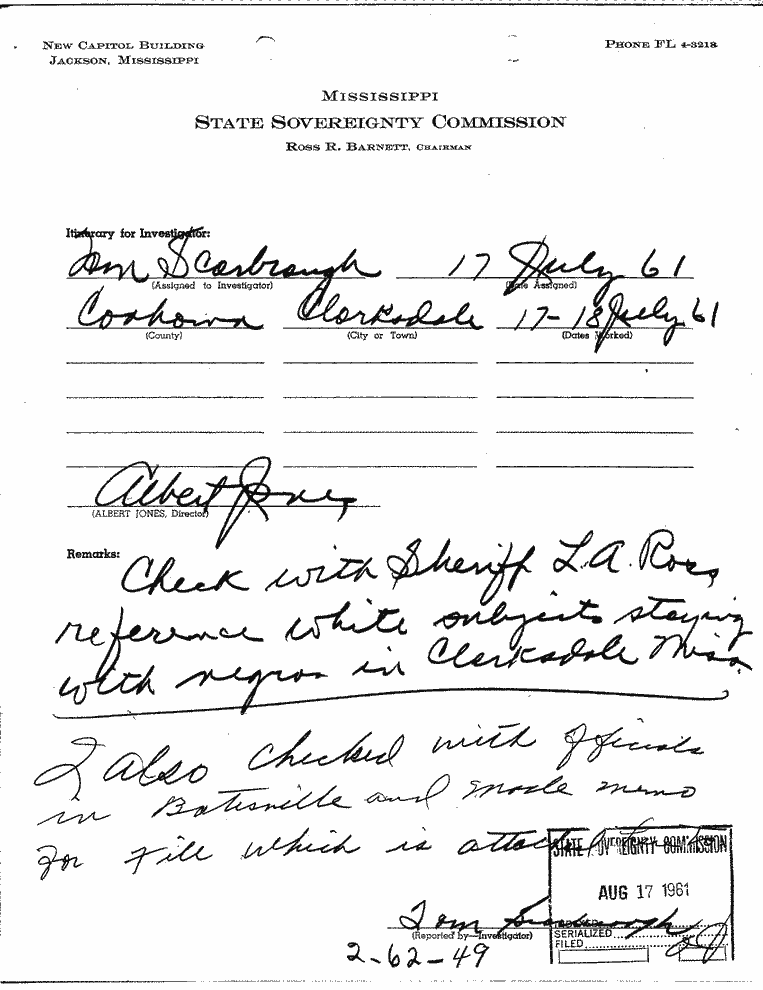 NEW CAPITOL BUILDING
JACKSON, MISSISSIPPI
PHONE FL 4-3218
MISSISSIPPI
STATE SOVEREIGNTY COMMISSION
ROSS R. BARNETT, CHAIRMAN
Itinerary for Investigator:
Tom Scarbrough 17 July 61
(Assigned to Investigator) (Date Assigned)
Coahoma Clarksdale 17-18 July 61
(County) (City or Town) (Dates Worked)
Albert Jones
(ALBERT JONES, Director)
Remarks:
Check with Sheriff L.A. Ross,
reference white subjects staying
with negros in Clarksdale Miss.
I also checked with officials
in Batesville and made memo
for file which is attached
STATE SOVEREIGNTY COMMISSION
AUG 17 1961
Tom Scarbrough
(Reported by—Investigator)
SERIALIZED
FILED
2-62-49